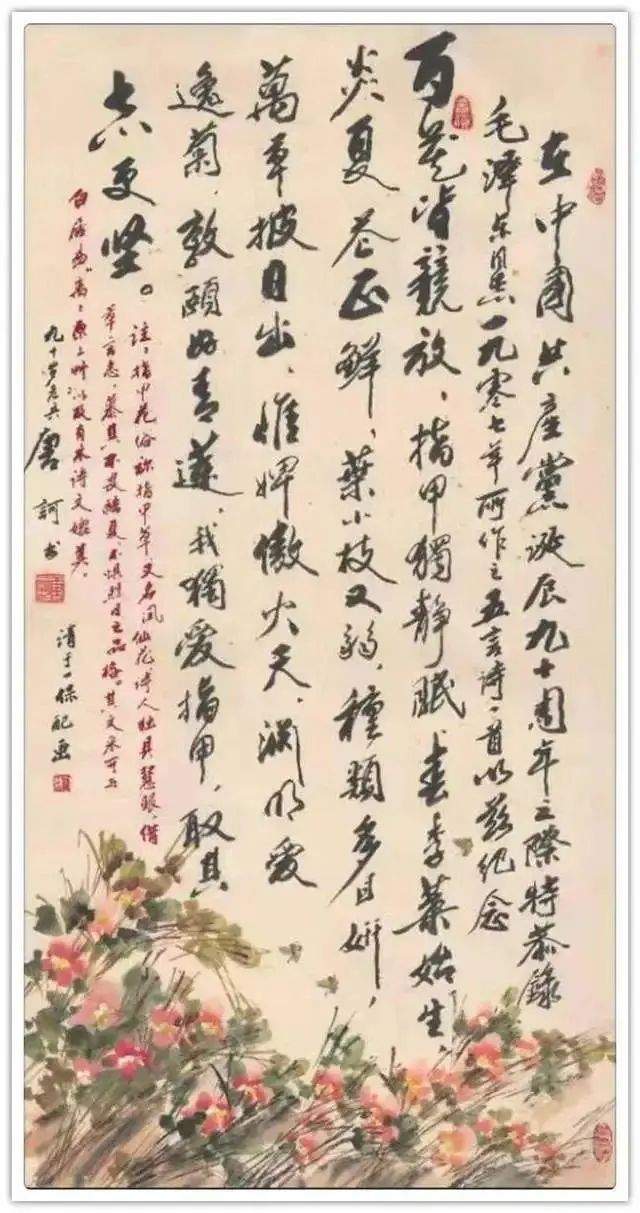 在中國共產黨誕辰九十周年之際特恭錄
毛澤东同志一九零七年所作之五言诗一首以兹纪念
百花皆競放,指甲獨靜眠,春季葉始生,
炎夏花正鲜,葉小枝又弱,種類多且妍,
萬草披日出,惟婢傲火天,淵明愛
逸菊,敦頤好青蓮,我獨愛指甲,取其
志更坚。
注:指甲花俗称指甲草又名凤仙花诗人独具慧眼,借
草言志,慕其不畏酷夏、不惧烈日之品格。其文采可与
白居易离离原上草以及有木诗文媲美。
九十岁老兵 唐訶书
保配画